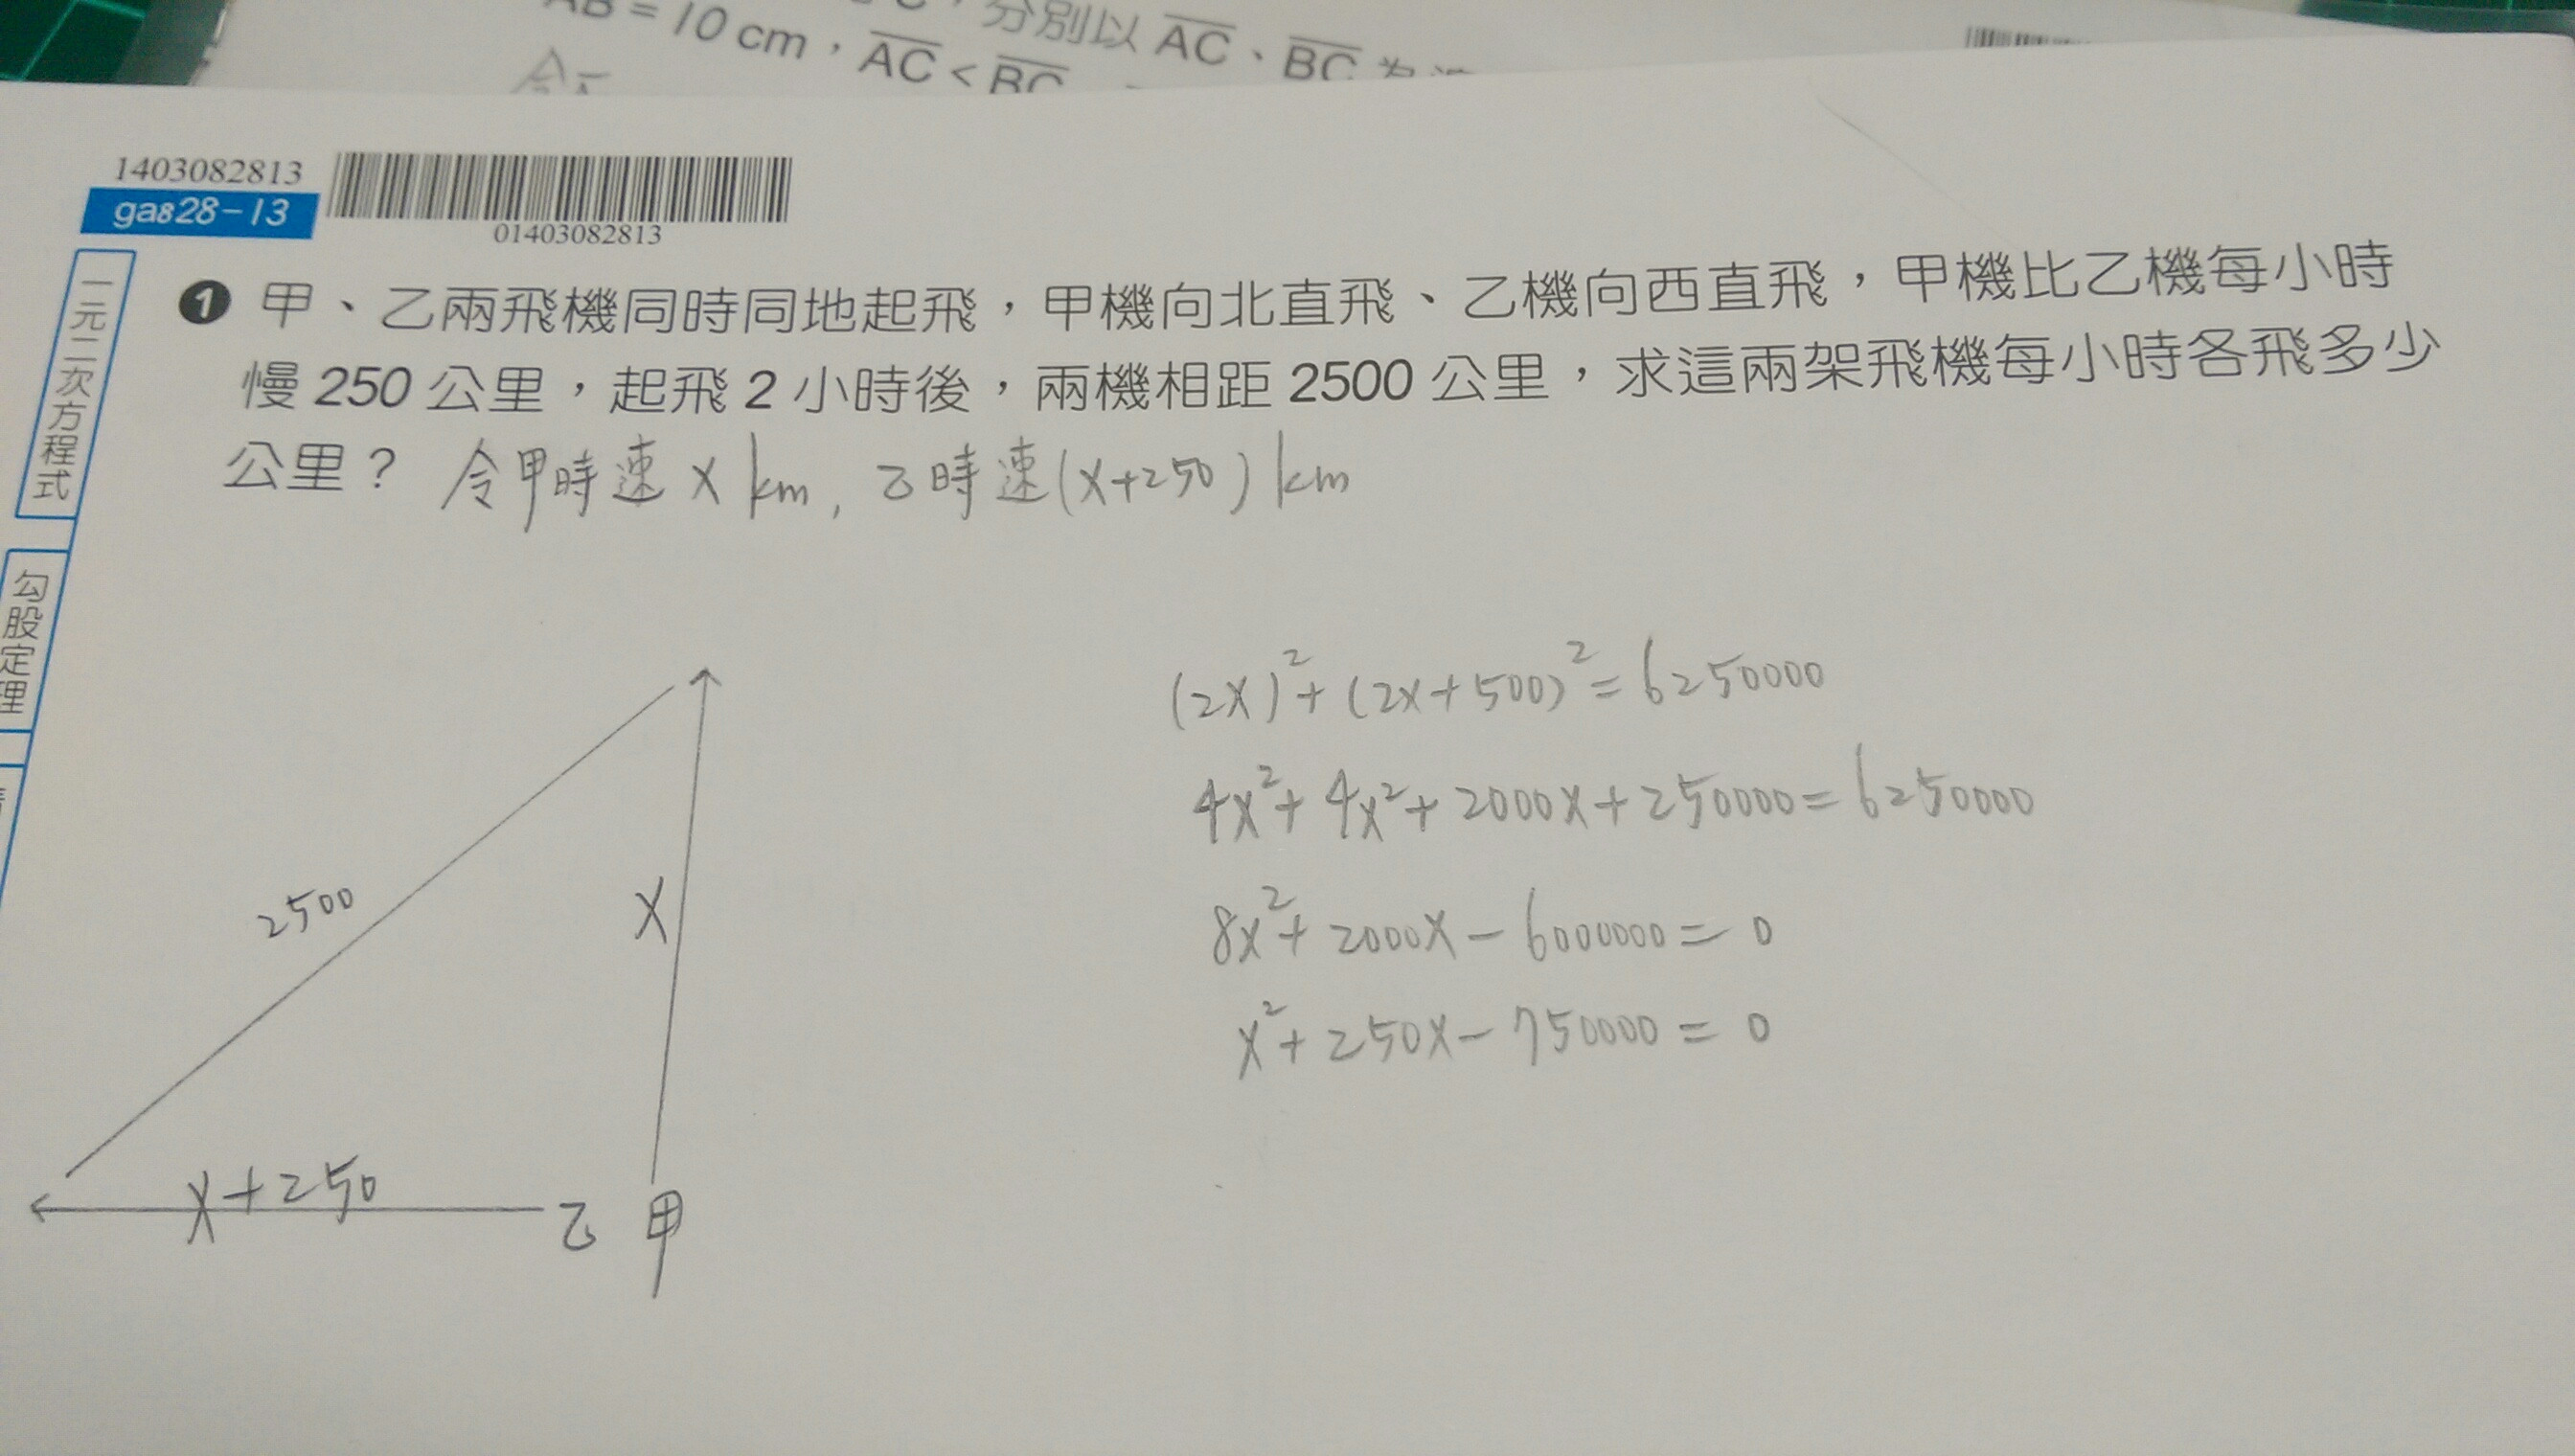 = 10 cm，AC < BC
分別以 AC、BC
1403082813
ga828-13
01403082813
一元二次方程式
勾股定理
❶ 甲、乙兩飛機同時同地起飛，甲機向北直飛、乙機向西直飛，甲機比乙機每小時
慢 250 公里，起飛 2 小時後，兩機相距 2500 公里，求這兩架飛機每小時各飛多少
公里？ 令甲時速 x km, 乙時速(x+250) km
(2x)²+(2x+500)²=6250000
4x²+4x²+2000x+250000=6250000
8x²+2000x-6000000=0
x²+250x-750000=0
2500
x
x+250
乙 甲